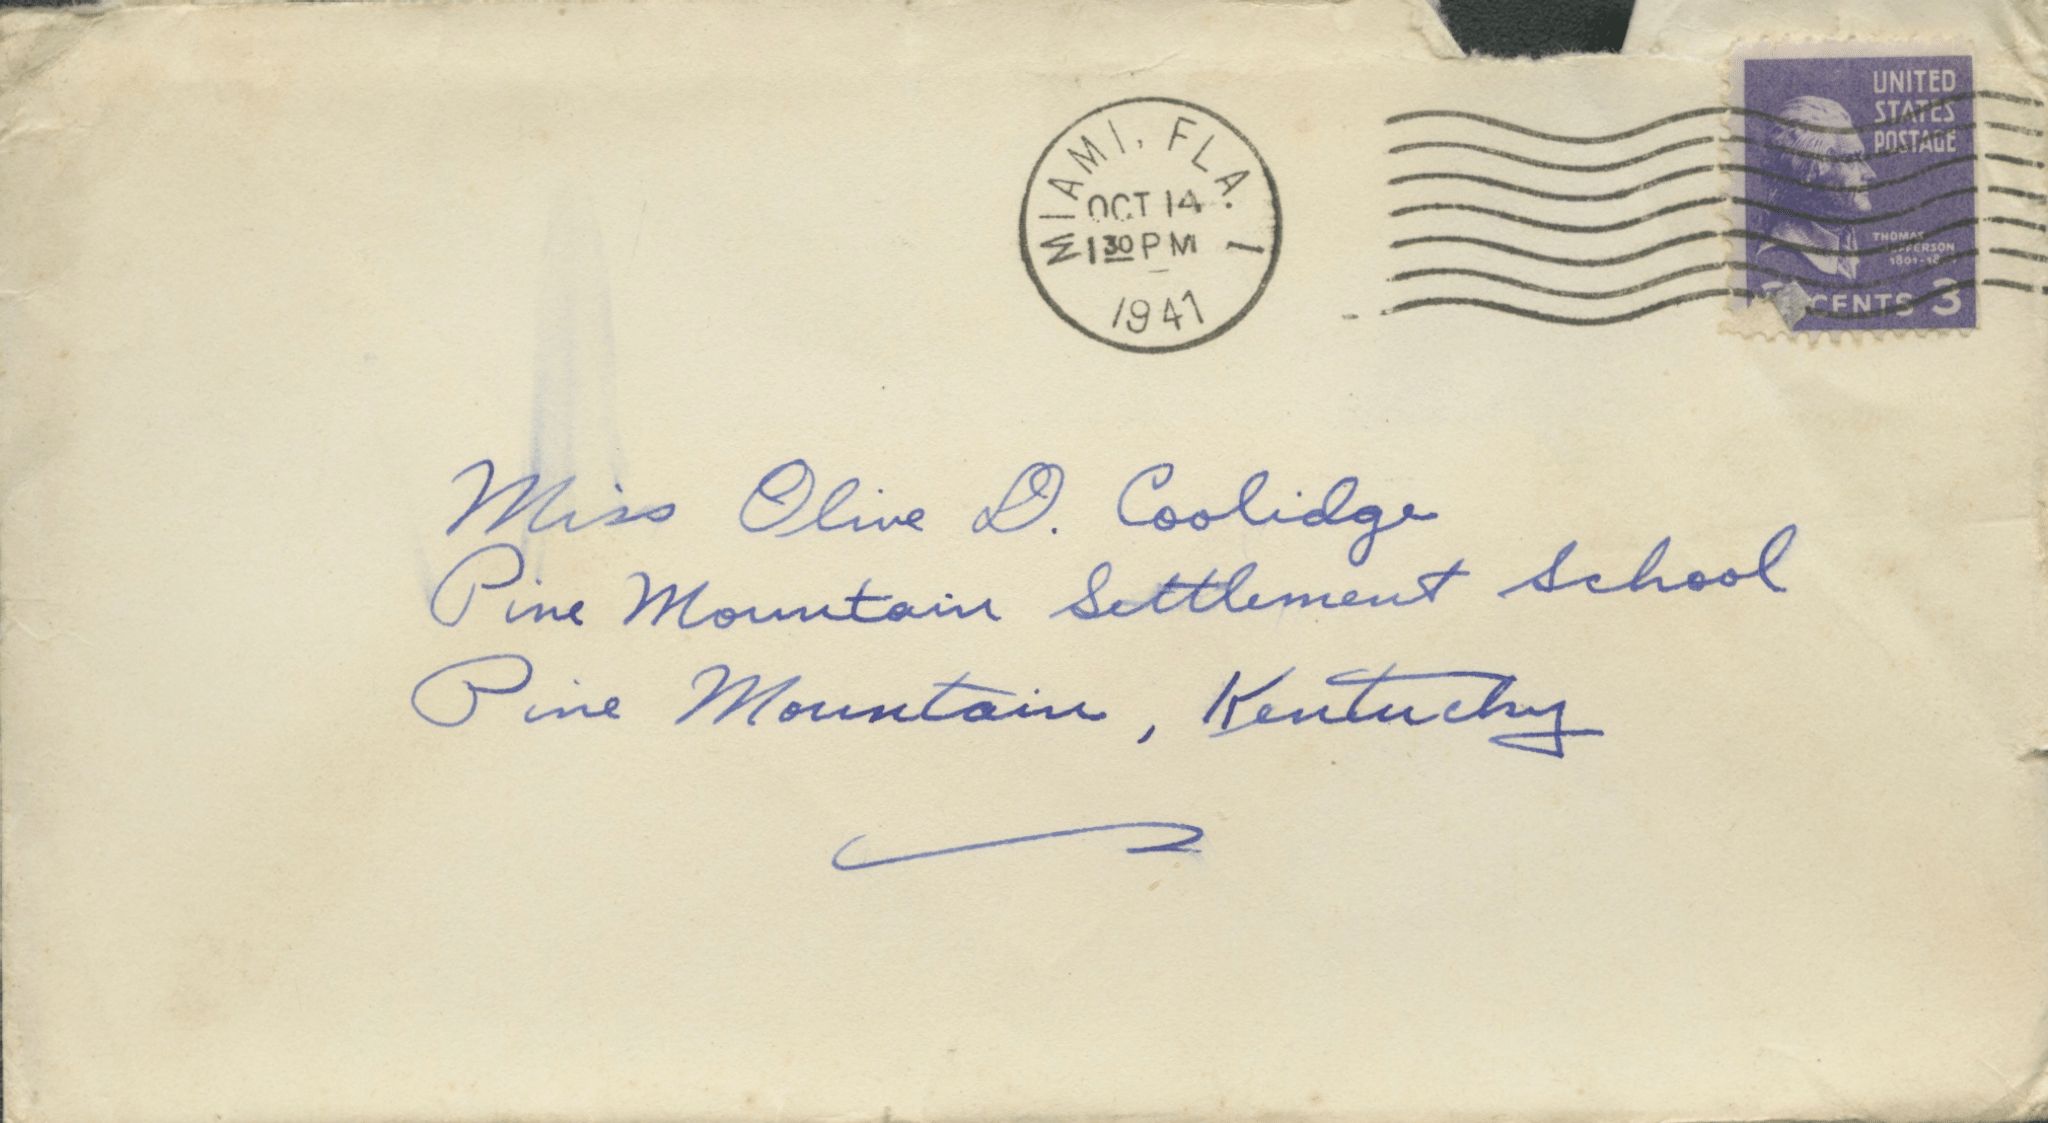 MIAMI, FLA. 1
OCT 14
1 30 PM
1941
UNITED
STATES
POSTAGE
THOMAS
JEFFERSON
1801-
CENTS 3
Miss Olive D. Coolidge
Pine Mountain Settlement School
Pine Mountain, Kentucky